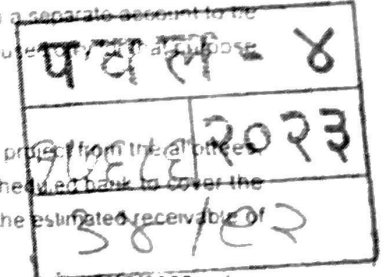 a separate account to be
पवल - ४
that purpose
२०२३
project from the allottees
heduled bank to cover the
he estimated receivable of
३४/९२